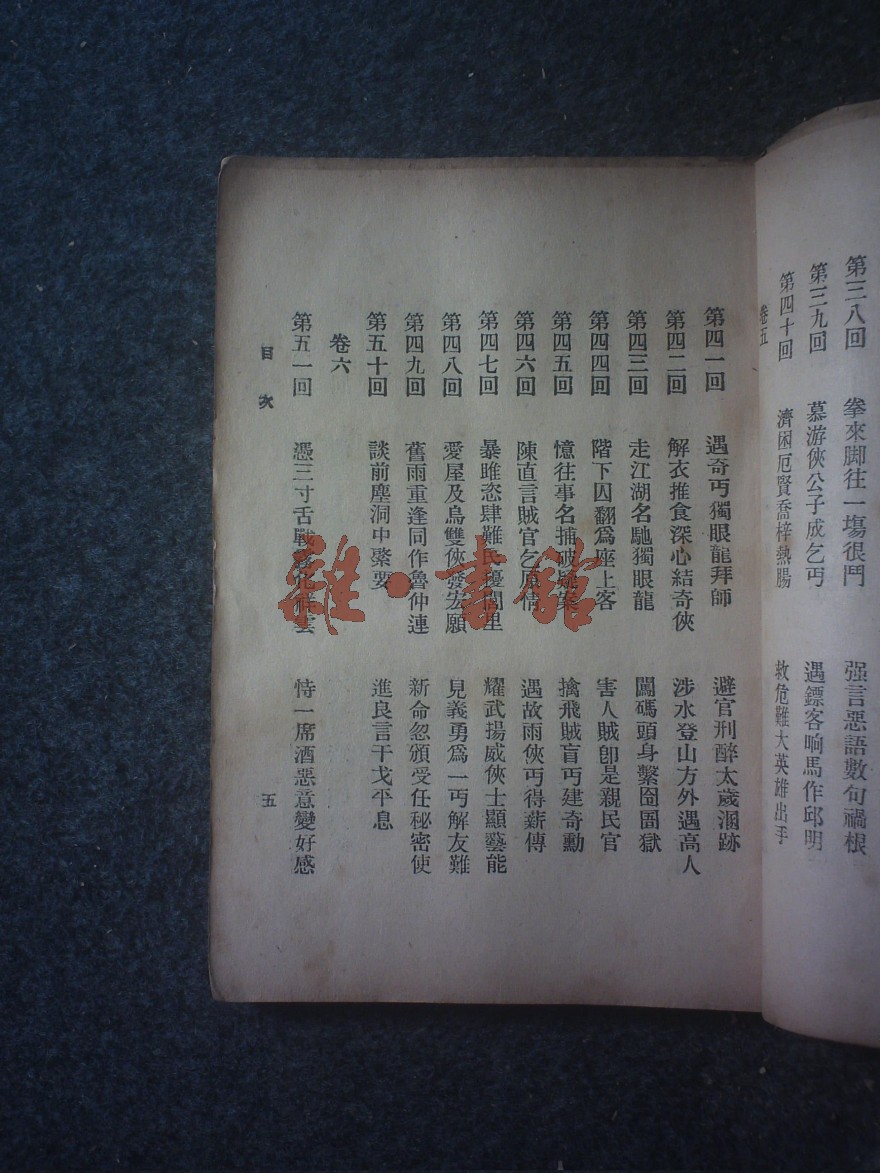 第三八回 拳來脚往一塲很鬥 强言惡語數句禍根
第三九回 慕游俠公子成乞丐 遇鏢客响馬作邱明
第四十回 濟困厄賢喬梓熱腸 救危難大英雄出手
卷五
第四一回 遇奇丐獨眼龍拜師 避官刑醉太歲溷跡
第四二回 解衣推食深心結奇俠 涉水登山方外遇高人
第四三回 走江湖名馳獨眼龍 闖碼頭身繫囹圄獄
第四四回 階下囚翻爲座上客 害人賊卽是親民官
第四五回 憶往事名捕破疑案 擒飛賊盲丐建奇勳
第四六回 陳直言賊官乞原情 遇故雨俠丐得薪傳
第四七回 暴雎恣肆難民擾閭里 耀武揚威俠士顯藝能
第四八回 愛屋及烏雙俠發宏願 見義勇爲一丐解友難
第四九回 舊雨重逢同作魯仲連 新命忽頒受任秘密使
第五十回 談前塵洞中槖要 進良言干戈平息
卷六
第五一回 憑三寸舌戰霧化祥雲 恃一席酒惡意變好感
目次
五
雜·書館